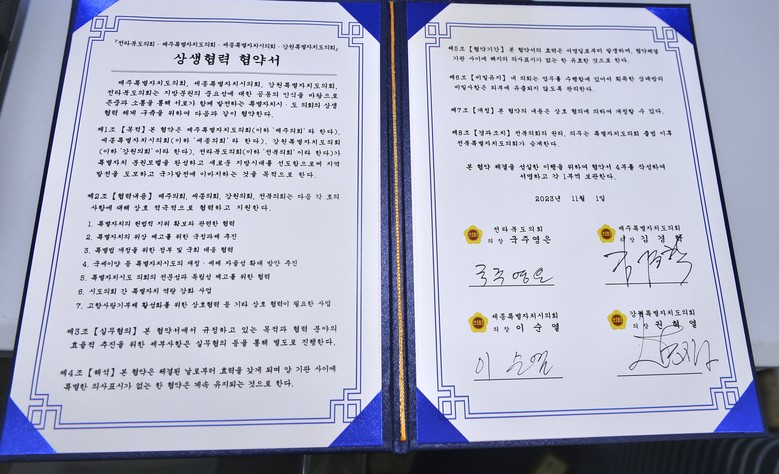 「전라북도의회 · 제주특별자치도의회 · 세종특별자치시의회 · 강원특별자치도의회」
상생협력 협약서
제주특별자치도의회, 세종특별자치시의회, 강원특별자치도의회,
전라북도의회는 지방분권의 중요성에 대한 공동의 인식을 바탕으로
존중과 소통을 통해 서로가 함께 발전하는 특별자치시·도 의회의 상생
협력 체계 구축을 위하여 다음과 같이 협약한다.
제1조 【목적】 본 협약은 제주특별자치도의회(이하 '제주의회'라 한다),
세종특별자치시의회(이하 '세종의회'라 한다), 강원특별자치도의회
(이하 '강원의회'라 한다), 전라북도의회(이하 '전북의회'라 한다)가
특별자치 분권모델을 완성하고 새로운 지방시대를 선도함으로써 지역
발전을 도모하고 국가발전에 이바지하는 것을 목적으로 한다.
제2조 【협력내용】 제주의회, 세종의회, 강원의회, 전북의회는 다음 각 호의
사항에 대해 상호 적극적으로 협력하고 지원한다.
1. 특별자치의 헌법적 지위 확보와 관련한 협력
2. 특별자치의 위상 제고를 위한 국정과제 추진
3. 특별법 개정을 위한 정부 및 국회 대응 협력
4. 국세이양 등 특별자치시도의 재정·세제 자율성 확대 방안 추진
5. 특별자치시도 의회의 전문성과 독립성 제고를 위한 협력
6. 시도의회 간 특별자치 역량 강화 사업
7. 고향사랑기부제 활성화를 위한 상호협력 등 기타 상호 협력이 필요한 사업
제3조 【실무협의】 본 협약서에서 규정하고 있는 목적과 협력 분야의
효율적 추진을 위한 세부사항은 실무협의 등을 통해 별도로 진행한다.
제4조 【해석】 본 협약은 체결된 날로부터 효력을 갖게 되며 양 기관 사이에
특별한 의사표시가 없는 한 협약은 계속 유지되는 것으로 한다.
제5조 【협약기간】 본 협약서의 효력은 서명일로부터 발생하며, 협약체결
기관 사이에 해지의 의사표시가 없는 한 유효한 것으로 한다.
제6조 【비밀유지】 네 의회는 업무를 수행함에 있어서 취득한 상대방의
비밀사항은 외부에 유출되지 않도록 관리한다.
제7조 【개정】 본 협약의 내용은 상호 협의에 의하여 개정할 수 있다.
제8조 【경과조치】 전북의회의 권리, 의무는 특별자치도의회 출범 이후
전북특별자치도의회가 승계한다.
본 협약 체결을 성실한 이행을 위하여 협약서 4부를 작성하여
서명하고 각 1부씩 보관한다.
2023년 11월 1일
전라북도의회
의장 국주영은
국주영은
제주특별자치도의회
의장 김경학
김경학
세종특별자치시의회
의장 이순열
이순열
강원특별자치도의회
의장 권혁열